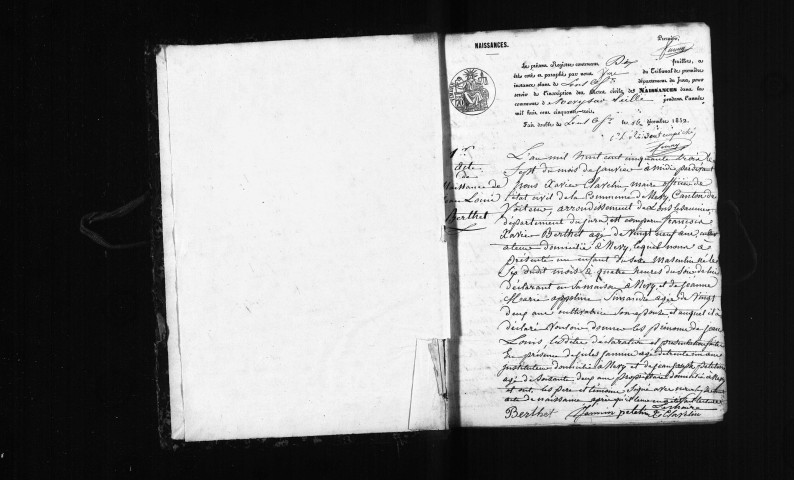 NAISSANCES.
Premier
Le présent Registre contenant Dix feuillets, a
été coté et paraphé par nous Vice du Tribunal de première
instance séant de Lons le Sr département du Jura, pour
servir de l'inscription des Actes civils de NAISSANCES dans la
commune de Nevy sur Seille pendant l'année
mil huit cent cinquante-trois.
Fait double à Lons le Sr le 16 décembre 1852.
1er
Acte
de
Naissance de
Jean Louis
Berthet
L'an mil huit cent cinquante trois le
sept du mois de janvier à midi pardevant
Nous Xavier Clavelin, maire officier de
l'état civil de la Commune de Nevy, Canton de
Voiteur, arrondissement de Lons le saunier,
département du Jura, est comparu francois
Xavier Berthet agé de Vingt neuf ans, cultiv
ateur domicilié à Nevy, lequel nous a
présenté un enfant du sexe masculin né le
dudit mois à quatre heures du soir de lui
déclarant en sa maison à Nevy et de jeanne
Marie appoline Simandre agée de Vingt
deux ans cultivatrice son epouse et auquel il a
déclaré Vouloir donner les prénoms de jean
Louis, les dites déclaration et présentation faites
En présence de jules jammin agé de trente un ans
instituteur domicilié à Nevy et de jean joseph Petetin
agé de soixante deux ans propriétaire domicilié à Nevy
et ont, les père et témoins signé avec nous, le présent
acte de naissance après qu'il leur en a été fait lecture
Le maire
Berthet Jammin petetin Clavelin